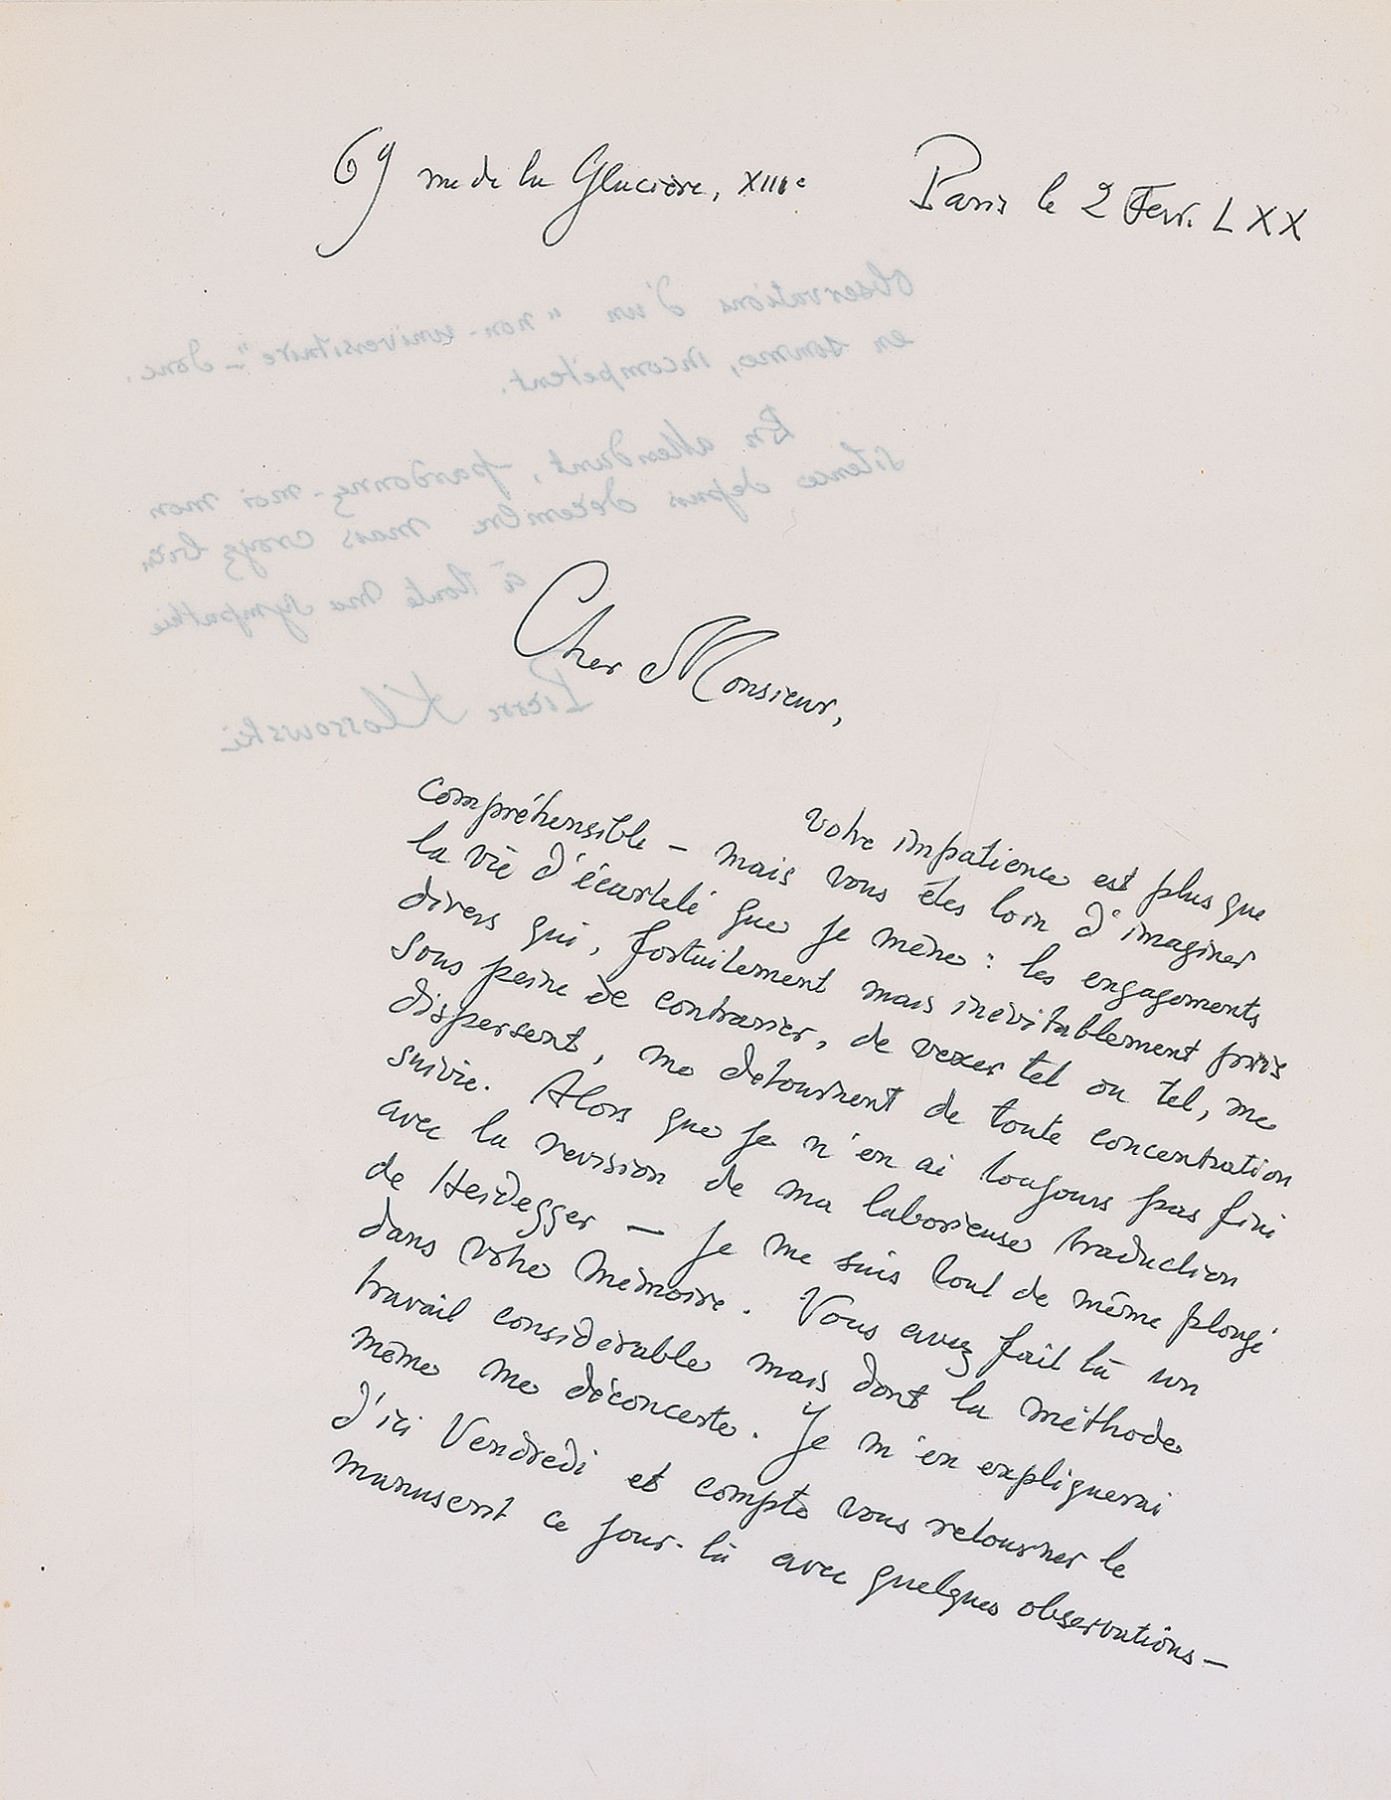 69 rue de la Glacière, XIIIe Paris le 2 Fevr. LXX
Cher Monsieur,
votre impatience est plus que
compréhensible – mais vous êtes loin d'imaginer
la vie d'écartelé que je mène : les engagements
divers qui, fortuitement mais inévitablement pris
sous peine de contrarier, de vexer tel ou tel, me
dispersent, me detournent de toute concentration
suivie. Alors que je n'en ai toujours pas fini
avec la revision de ma laborieuse traduction
de Heidegger — je me suis tout de même plongé
dans votre mémoire. Vous avez fait là un
travail considérable mais dont la méthode
même me déconcerte. Je m'en expliquerai
d'ici Vendredi et compte vous retourner le
manuscrit ce jour-là avec quelques observations –
observations d'un "non-universitaire" – donc,
en somme, incompétent.
En attendant, pardonnez-moi mon
silence depuis décembre mais croyez bien,
à toute ma sympathie
Pierre Klossowski